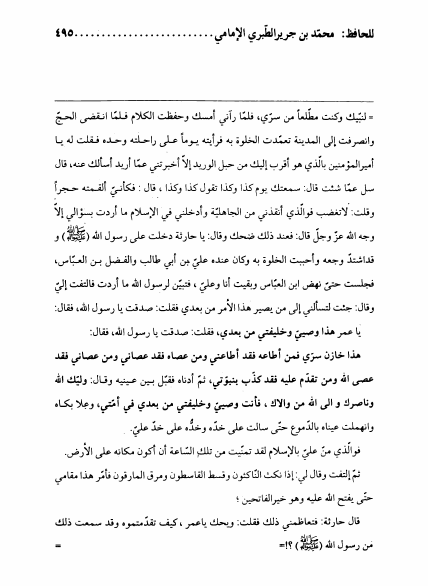 للحافظ: محمّد بن جرير الطّبري الإمامي .......................... ٤٩٥
= لنبيّك وكنت مطّلعاً من سرّي، فلمّا رآني أمسك وحفظت الكلام فلمّا انقضى الحجّ
وانصرفت إلى المدينة تعمّدت الخلوة به فرأيته يوماً على راحلته وحده فقلت له يا
أميرالمؤمنين بالّذي هو أقرب إليك من حبل الوريد إلّا أخبرتني عمّا أريد أسألك عنه، قال
سل عمّا شئت قال: سمعتك يوم كذا وكذا تقول كذا وكذا، قال: فكأنّي ألقمته حجراً
وقلت: لاتغضب فوالّذي أنقذني من الجاهليّة وأدخلني في الإسلام ما أردت بسؤالي إلّا
وجه الله عزّ وجلّ قال: فعند ذلك ضحك وقال: يا حارثة دخلت على رسول الله (ﷺ) و
قداشتدّ وجعه وأحببت الخلوة به وكان عنده عليّ بن أبي طالب والفضل بن العبّاس،
فجلست حتىّ نهض ابن العبّاس وبقيت أنا وعليّ، فتبيّن لرسول الله ما أردت فالتفت إليّ
وقال: جئت لتسألني إلى من يصير هذا الأمر من بعدي فقلت: صدقت يا رسول الله، فقال:
يا عمر هذا وصيّي وخليفتي من بعدي، فقلت: صدقت يا رسول الله، فقال:
هذا خازن سرّي فمن أطاعه فقد أطاعني ومن عصاه فقد عصاني ومن عصاني فقد
عصى الله ومن تقدّم عليه فقد كذّب بنبوّتي، ثمّ أدناه فقبّل بين عينيه وقال: وليّك الله
وناصرك و الى الله من والاك، فأنت وصيّي وخليفتي من بعدي في أمّتي، وعلا بكاه
وانهملت عيناه بالدّموع حتّى سالت على خدّه وخدُّه على خدّ عليّ.
فوالّذي منّ عليّ بالإسلام لقد تمنّيت من تلك السّاعة أن أكون مكانه على الأرض.
ثمّ إلتفت وقال لي: إذا نكث النّاكثون وقسط القاسطون ومرق المارقون فأمر هذا مقامي
حتّى يفتح الله عليه وهو خيرالفاتحين؛
قال حارثة: فتعاظمني ذلك فقلت: ويحك ياعمر، كيف تقدّمتموه وقد سمعت ذلك
من رسول الله (ﷺ) ؟!= =